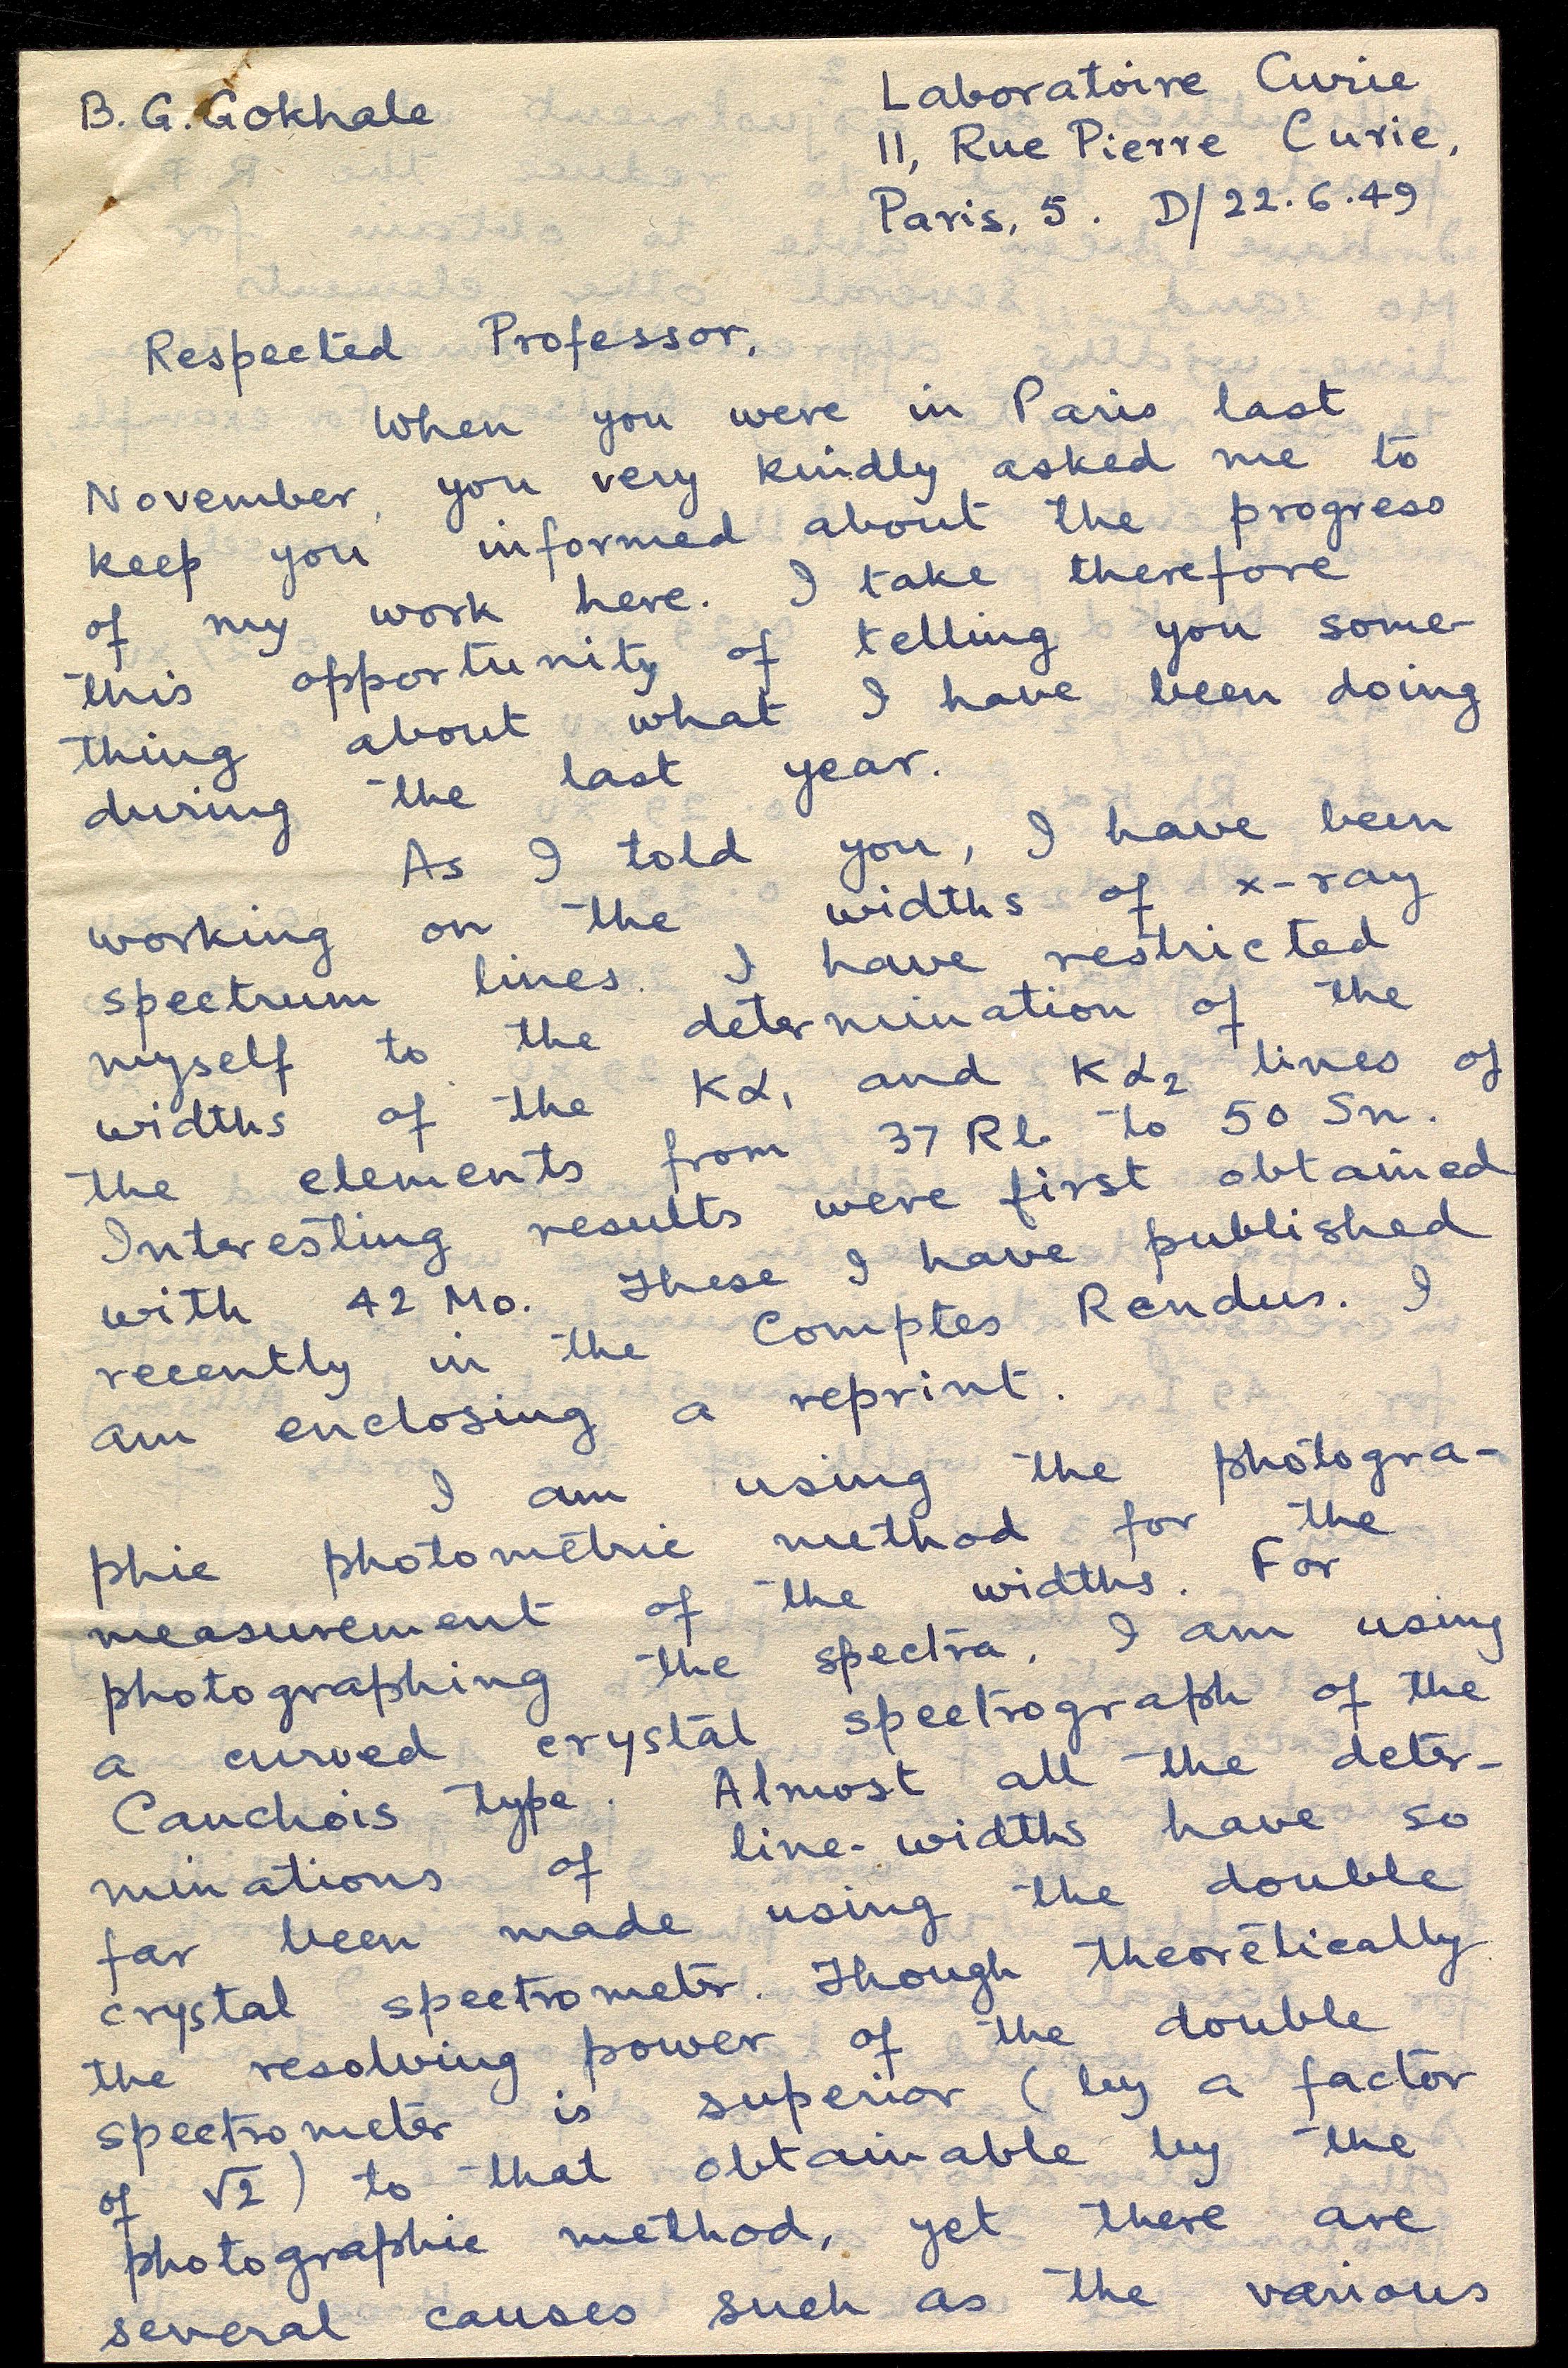 B. G. Gokhale
Laboratoire Curie
11, Rue Pierre Curie,
Paris, 5. D/22.6.49
Respected Professor,
When you were in Paris last
November, you very kindly asked me to
keep you informed about the progress
of my work here. I take therefore
this opportunity of telling you some-
thing about what I have been doing
during the last year.
As I told you, I have been
working on the widths of x-ray
spectrum lines. I have restricted
myself to the determination of the
widths of the Kα₁ and Kα₂ lines of
the elements from 37 Rb to 50 Sn.
Interesting results were first obtained
with 42 Mo. These I have published
recently in the Comptes Rendus. I
am enclosing a reprint.
I am using the photogra-
phic photometric method for the
measurement of the widths. For
photographing the spectra, I am using
a curved crystal spectrograph of the
Cauchois type. Almost all the deter-
minations of line-widths have so
far been made using the double
crystal spectrometer. Though theoretically
the resolving power of the double
spectrometer is superior (by a factor
of √2) to that obtainable by the
photographic method, yet there are
several causes such as the various